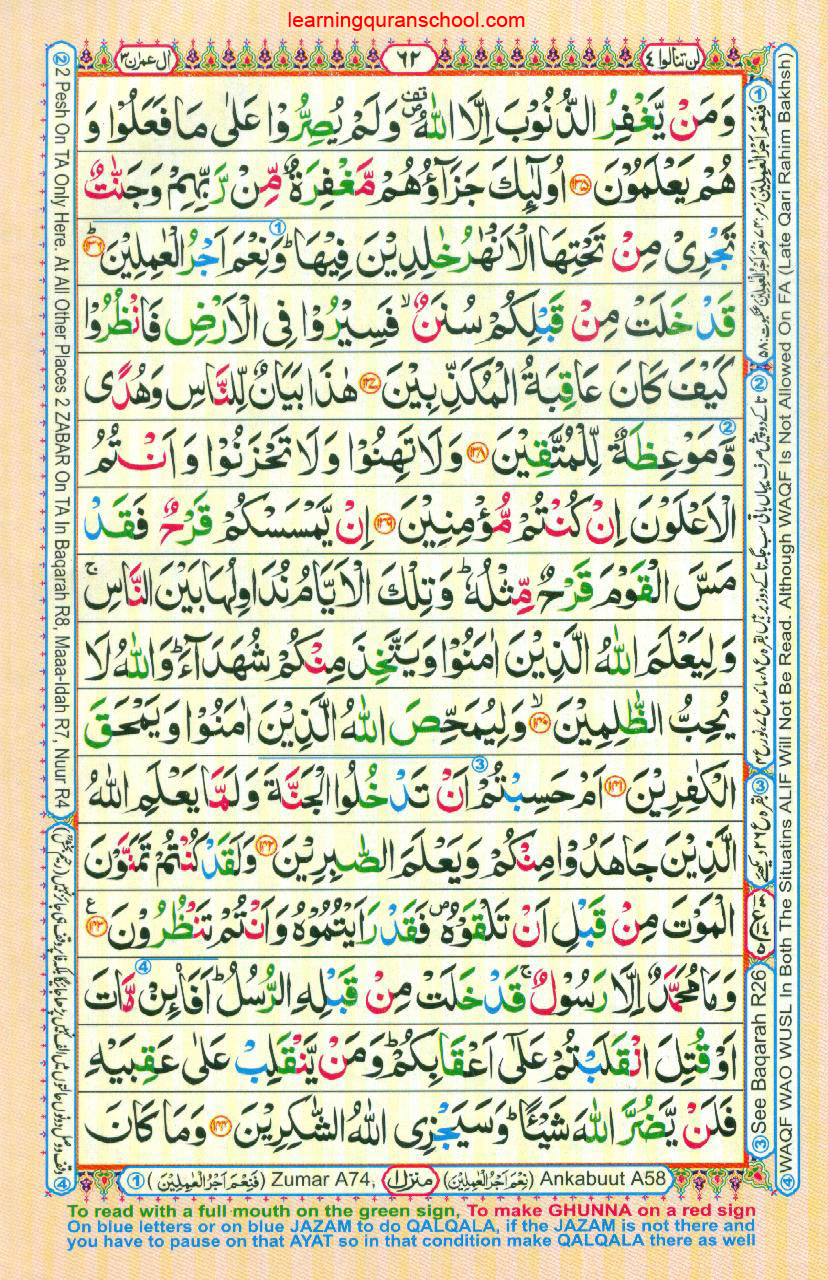 learningquranschool.com
لن تنالوا ٤
٦٢
ال عمرٰن ٣
وَمَنْ يَّغْفِرُ الذُّنُوْبَ اِلَّا اللّٰهُ ۪ وَلَمْ يُصِرُّوْا عَلٰى مَا فَعَلُوْا وَ
هُمْ يَعْلَمُوْنَ ۝۱۳۵ اُولٰٓئِكَ جَزَآؤُهُمْ مَّغْفِرَةٌ مِّنْ رَّبِّهِمْ وَجَنّٰتٌ
تَجْرِىْ مِنْ تَحْتِهَا الْاَنْهٰرُ خٰلِدِيْنَ فِيْهَا ؕ وَنِعْمَ اَجْرُ الْعٰمِلِيْنَ ؕ ۝۱۳۶
قَدْ خَلَتْ مِنْ قَبْلِكُمْ سُنَنٌ ۙ فَسِيْرُوْا فِى الْاَرْضِ فَانْظُرُوْا
كَيْفَ كَانَ عَاقِبَةُ الْمُكَذِّبِيْنَ ۝۱۳۷ هٰذَا بَيَانٌ لِّلنَّاسِ وَهُدًى
وَّمَوْعِظَةٌ لِّلْمُتَّقِيْنَ ۝۱۳۸ وَلَا تَهِنُوْا وَلَا تَحْزَنُوْا وَاَنْتُمُ
الْاَعْلَوْنَ اِنْ كُنْتُمْ مُّؤْمِنِيْنَ ۝۱۳۹ اِنْ يَّمْسَسْكُمْ قَرْحٌ فَقَدْ
مَسَّ الْقَوْمَ قَرْحٌ مِّثْلُهٗ ؕ وَتِلْكَ الْاَيَّامُ نُدَاوِلُهَا بَيْنَ النَّاسِ ۚ
وَلِيَعْلَمَ اللّٰهُ الَّذِيْنَ اٰمَنُوْا وَيَتَّخِذَ مِنْكُمْ شُهَدَآءَ ؕ وَاللّٰهُ لَا
يُحِبُّ الظّٰلِمِيْنَ ۙ ۝۱۴۰ وَلِيُمَحِّصَ اللّٰهُ الَّذِيْنَ اٰمَنُوْا وَيَمْحَقَ
الْكٰفِرِيْنَ ۝۱۴۱ اَمْ حَسِبْتُمْ اَنْ تَدْخُلُوا الْجَنَّةَ وَلَمَّا يَعْلَمِ اللّٰهُ
الَّذِيْنَ جَاهَدُوْا مِنْكُمْ وَيَعْلَمَ الصّٰبِرِيْنَ ۝۱۴۲ وَلَقَدْ كُنْتُمْ تَمَنَّوْنَ
الْمَوْتَ مِنْ قَبْلِ اَنْ تَلْقَوْهُ ۪ فَقَدْ رَاَيْتُمُوْهُ وَاَنْتُمْ تَنْظُرُوْنَ ۝۱۴۳ ع
وَمَا مُحَمَّدٌ اِلَّا رَسُوْلٌ ۚ قَدْ خَلَتْ مِنْ قَبْلِهِ الرُّسُلُ ؕ اَفَا۟ئِنْ مَّاتَ
اَوْ قُتِلَ انْقَلَبْتُمْ عَلٰٓى اَعْقَابِكُمْ ؕ وَمَنْ يَّنْقَلِبْ عَلٰى عَقِبَيْهِ
فَلَنْ يَّضُرَّ اللّٰهَ شَيْـًٔا ؕ وَسَيَجْزِى اللّٰهُ الشّٰكِرِيْنَ ۝۱۴۴ وَمَا كَانَ
① (فَنِعْمَ اَجْرُ الْعٰمِلِيْنَ) Zumar A74, منزل ۱ (نِعْمَ اَجْرُ الْعٰمِلِيْنَ) Ankabuut A58
② 2 Pesh On TA Only Here. At All Other Places 2 ZABAR On TA In Baqarah R8, Maaa-Idah R7, Nuur R4
③ See Baqarah R26
④ WAQF WAO WUSL In Both The Situatins ALIF Will Not Be Read. Although WAQF Is Not Allowed On FA (Late Qari Rahim Bakhsh)
To read with a full mouth on the green sign, To make GHUNNA on a red sign
On blue letters or on blue JAZAM to do QALQALA, if the JAZAM is not there and
you have to pause on that AYAT so in that condition make QALQALA there as well